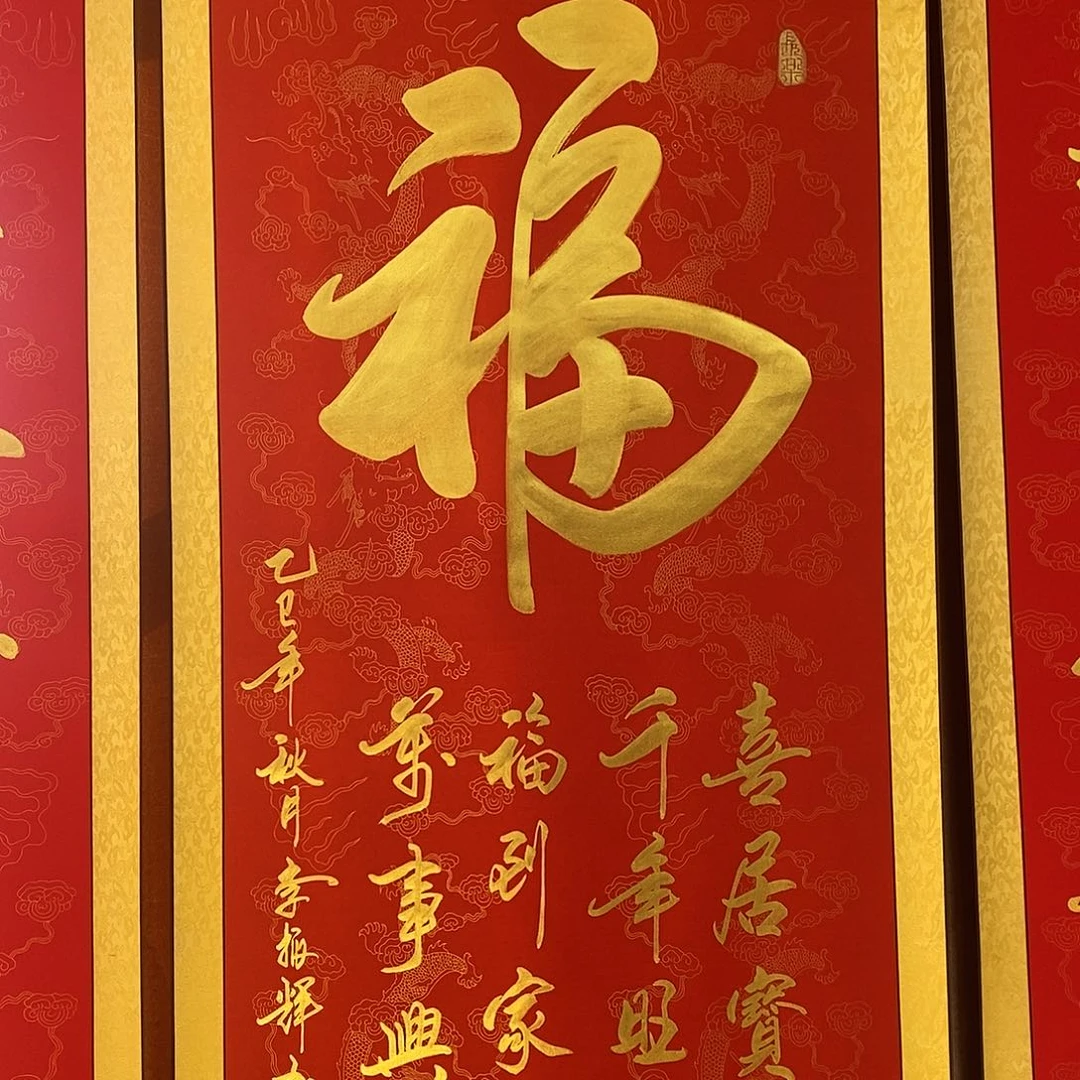 福
喜居寶
千年旺
福到家
萬事興
乙巳年 秋月 李振輝